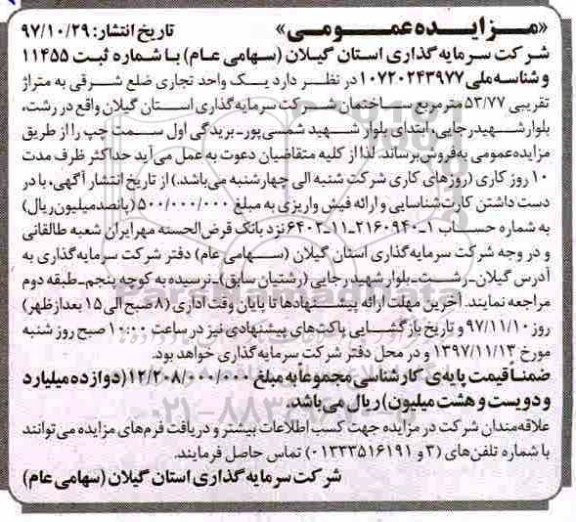 «مـزایده عمـومـی» تاریخ انتشار: ۹۷/۱۰/۲۹
شرکت سرمایه گذاری استان گیلان (سهامی عام) با شماره ثبت ۱۱۴۵۵
و شناسه ملی ۱۰۷۲۰۲۴۳۹۷۷ در نظر دارد یک واحد تجاری ضلع شرقی به متراژ
تقریبی ۵۳/۷۷ مترمربع ساختمان شرکت سرمایه گذاری استان گیلان واقع در رشت،
بلوار شهیدرجایی، ابتدای بلوار شهید شمسی پور-بریدگی اول سمت چپ را از طریق
مزایده عمومی به فروش برساند. لذا از کلیه متقاضیان دعوت به عمل می آید حداکثر ظرف مدت
۱۰ روز کاری (روزهای کاری شرکت شنبه الی چهارشنبه می باشد.) از تاریخ انتشار آگهی، با در
دست داشتن کارت شناسایی و ارائه فیش واریزی به مبلغ ۵۰۰/۰۰۰/۰۰۰ (پانصدمیلیون ریال)
به شماره حساب ۱-۲۱۶۰۹۴۰-۱۱-۶۴۰۲ نزد بانک قرض الحسنه مهر ایران شعبه طالقانی
و در وجه شرکت سرمایه گذاری استان گیلان (سهامی عام) دفتر شرکت سرمایه گذاری به
آدرس گیلان-رشت-بلوار شهیدرجایی (رشتیان سابق)-نرسیده به کوچه پنجم-طبقه دوم
مراجعه نمایند. آخرین مهلت ارائه پیشنهادها تا پایان وقت اداری (۸ صبح الی ۱۵ بعدازظهر)
روز ۹۷/۱۱/۱۰ و تاریخ بازگشایی پاکت های پیشنهادی نیز در ساعت ۱۰:۰۰ صبح روز شنبه
مورخ ۱۳۹۷/۱۱/۱۳ و در محل دفتر شرکت سرمایه گذاری خواهد بود.
ضمناً قیمت پایه ی کارشناسی مجموعاً به مبلغ ۱۲/۲۰۸/۰۰۰/۰۰۰ (دوازده میلیارد
و دویست و هشت میلیون) ریال می باشد.
علاقه مندان شرکت در مزایده جهت کسب اطلاعات بیشتر و دریافت فرم های مزایده می توانند
با شماره تلفن های (۳ و ۰۱۳۳۳۵۱۶۱۹۱) تماس حاصل فرمایند.
شرکت سرمایه گذاری استان گیلان (سهامی عام)